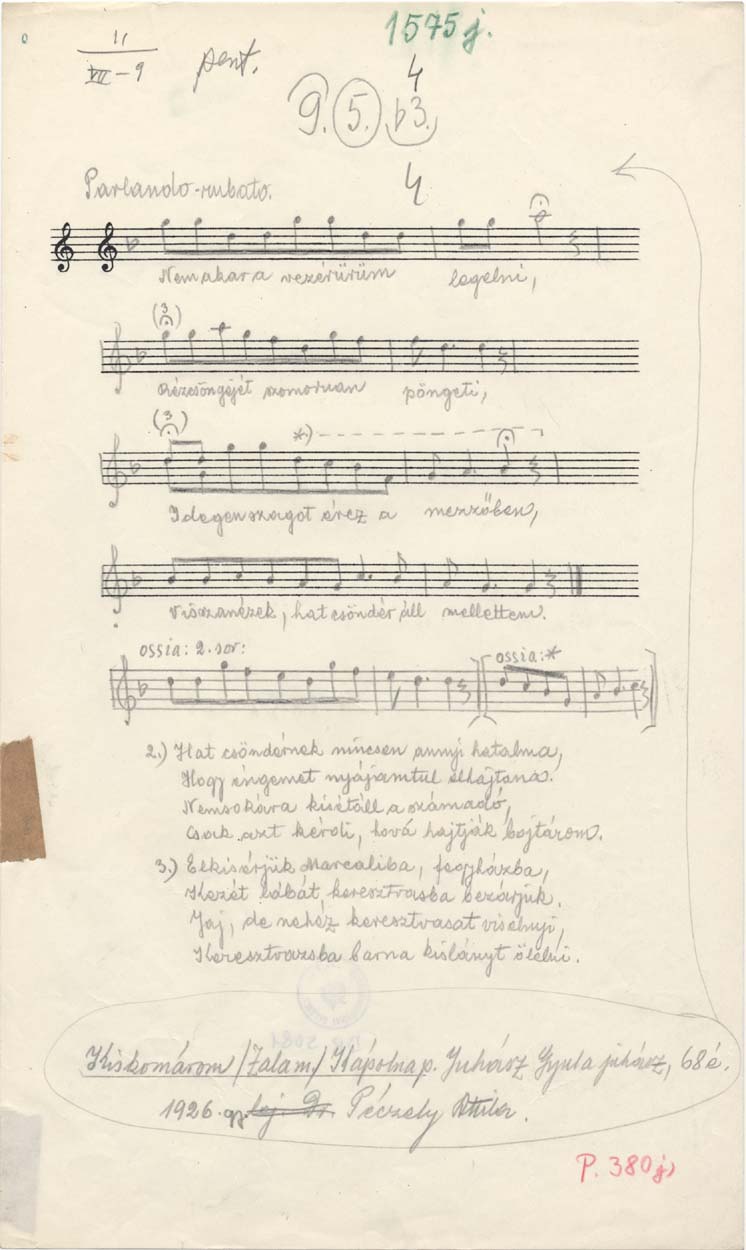 1575 j.
11
VII-9
pent.
4
9. 5. b3.
4
Parlando-rubato.
Nem akar a vezérürüm legelni,
(3)
Rézcsöngőjét szomoruan pöngeti,
(3)
*)
Idegenszagot érez a mezzőben,
Visszanézek, hat csöndér áll mellettem.
ossia: 2. sor:
ossia:*
2.) Hat csöndérnek nincsen annyi hatalma,
Hogy éngemet nyájamtul elhajtana.
Nemsokára kisétáll a számadó,
Csak azt kérdi, hová hajtják bojtárom.
3.) Elkisérjük Marcaliba, fegyházba,
Kezét lábát keresztvasba bezárjuk.
Jaj, de nehéz keresztvasat viselnyi,
Keresztvazsba barna kislányt ölelni.
Kiskomárom /Zala m./ Kápolna p. Juhász Gyula juhász, 68 é.
1926. gy. lej. Dr. Péczely Attila.
P. 380 j)